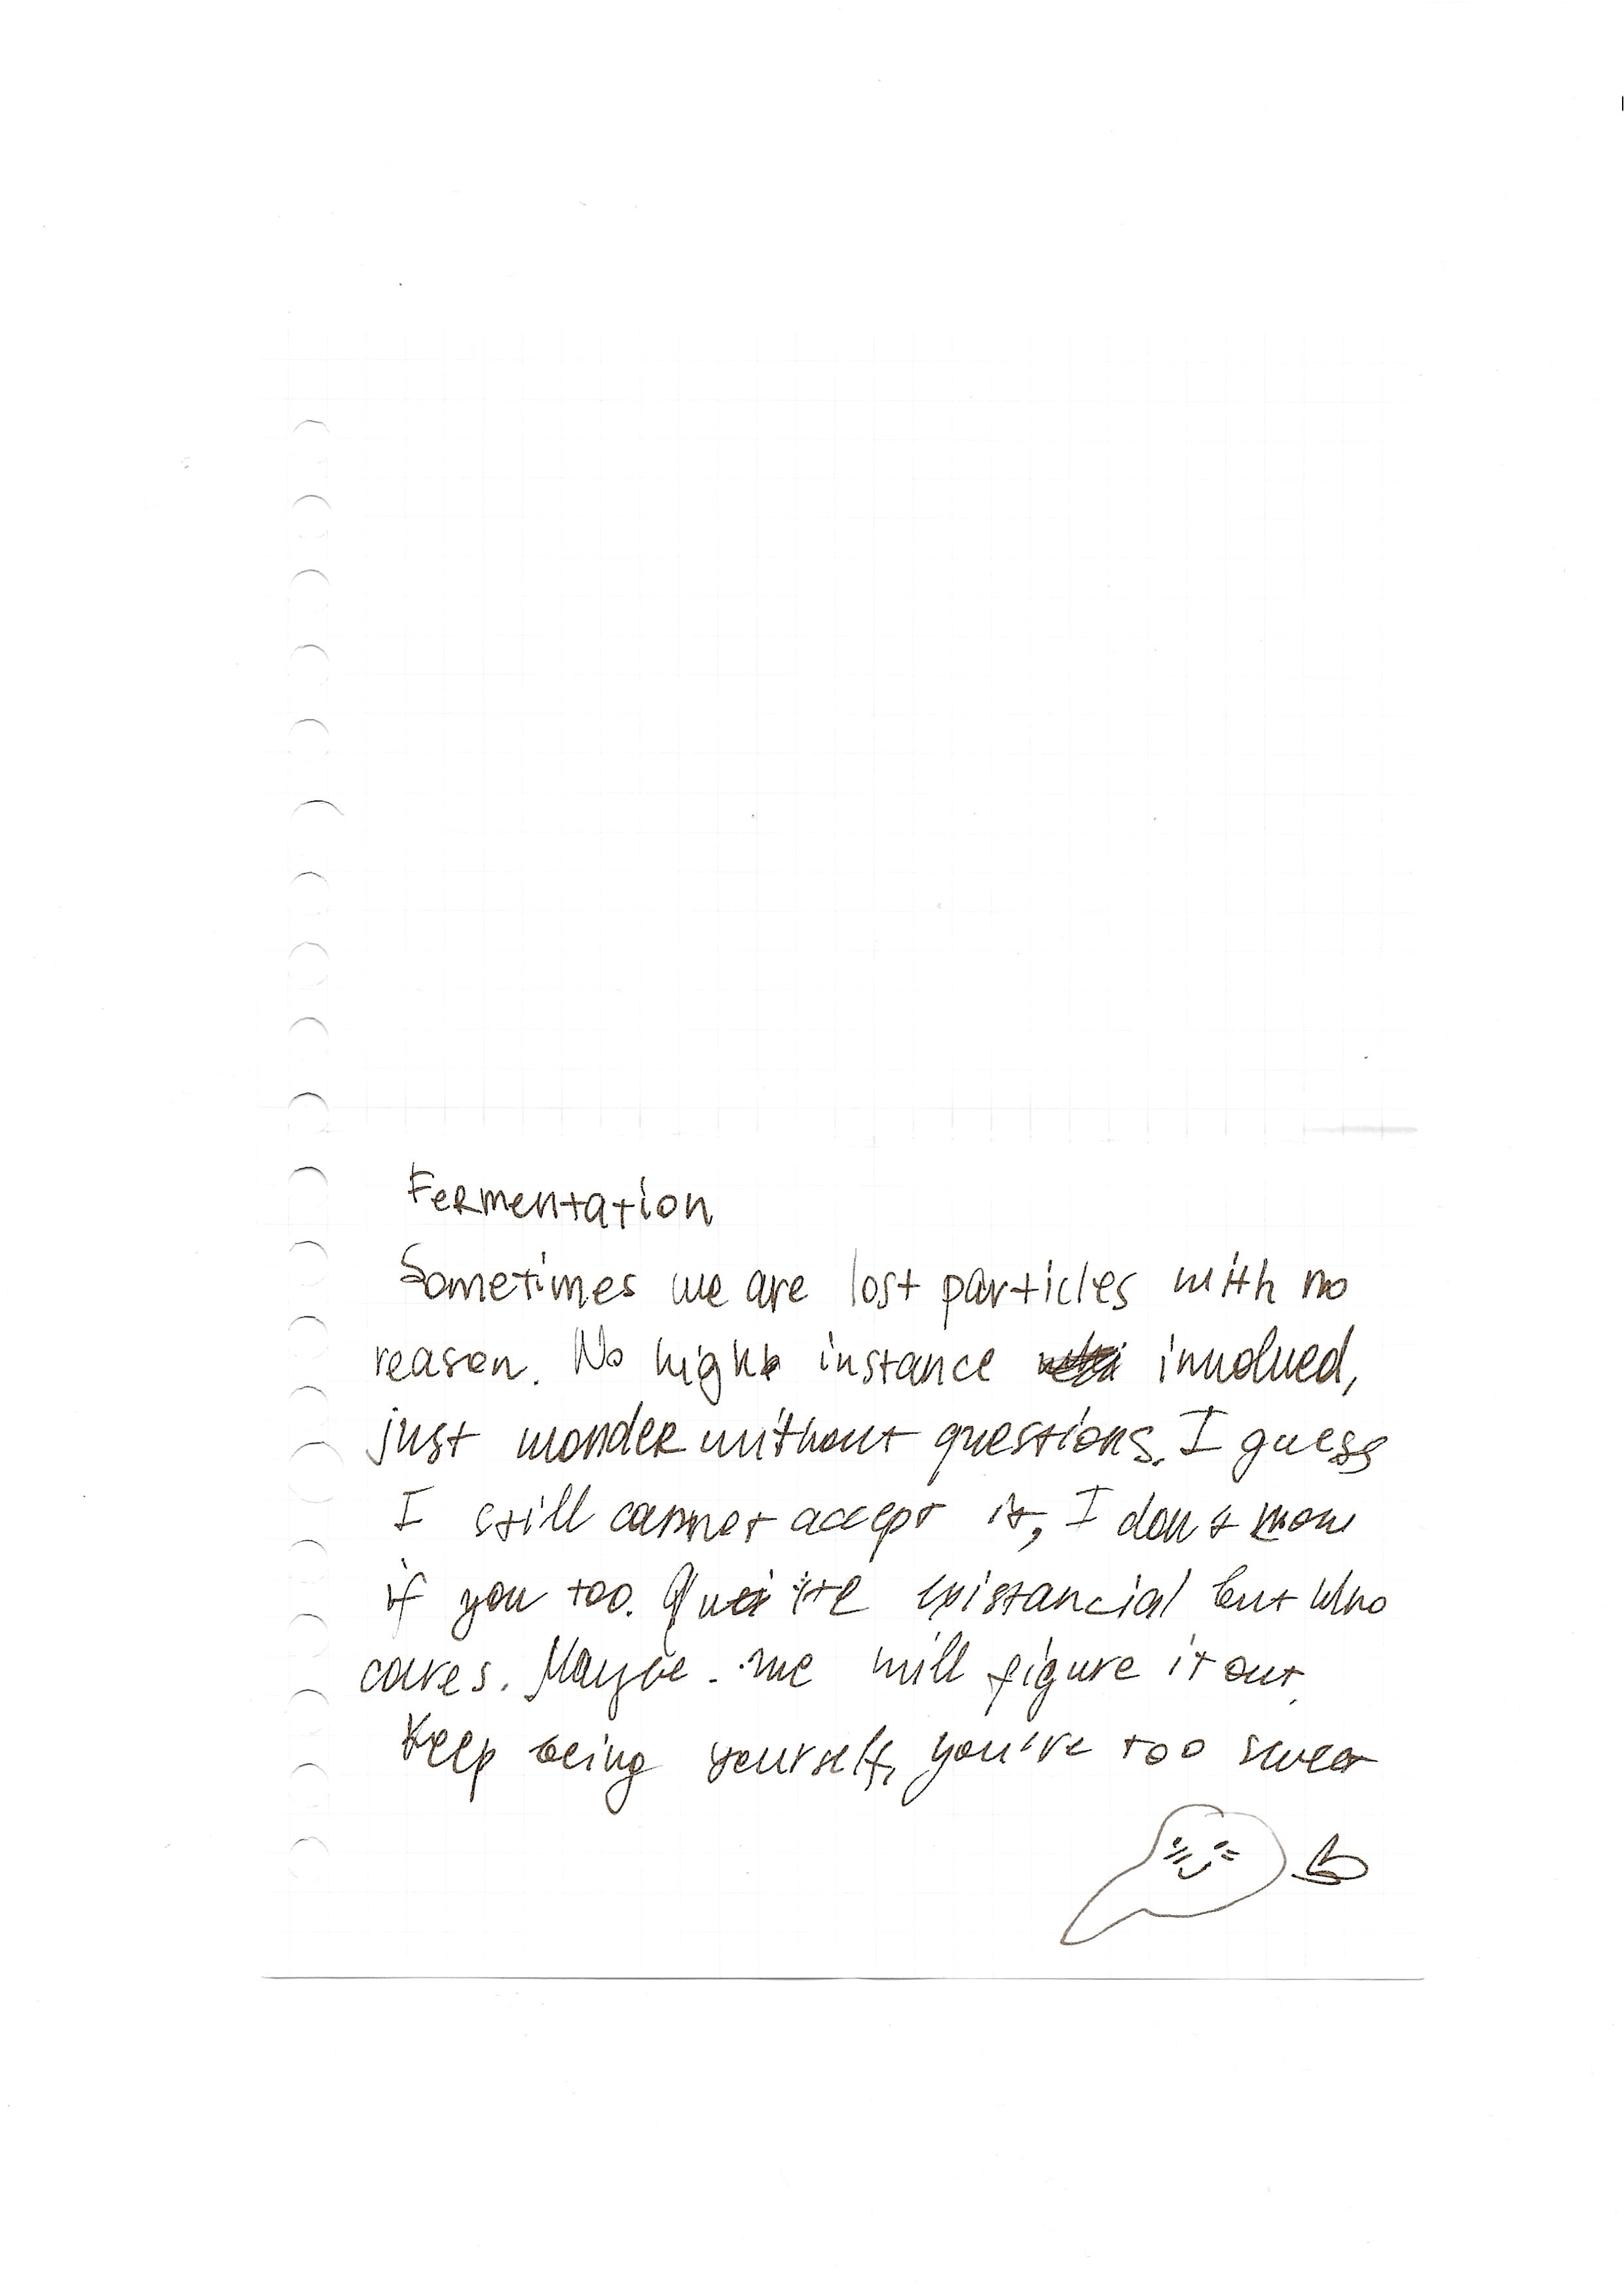 Fermentation
Sometimes we are lost particles with no
reason. No high instance involved,
just wonder without questions. I guess
I still cannot accept it, I don't know
if you too. Quite existancial but who
cares. Maybe we will figure it out.
Keep being yourself, you're too sweet